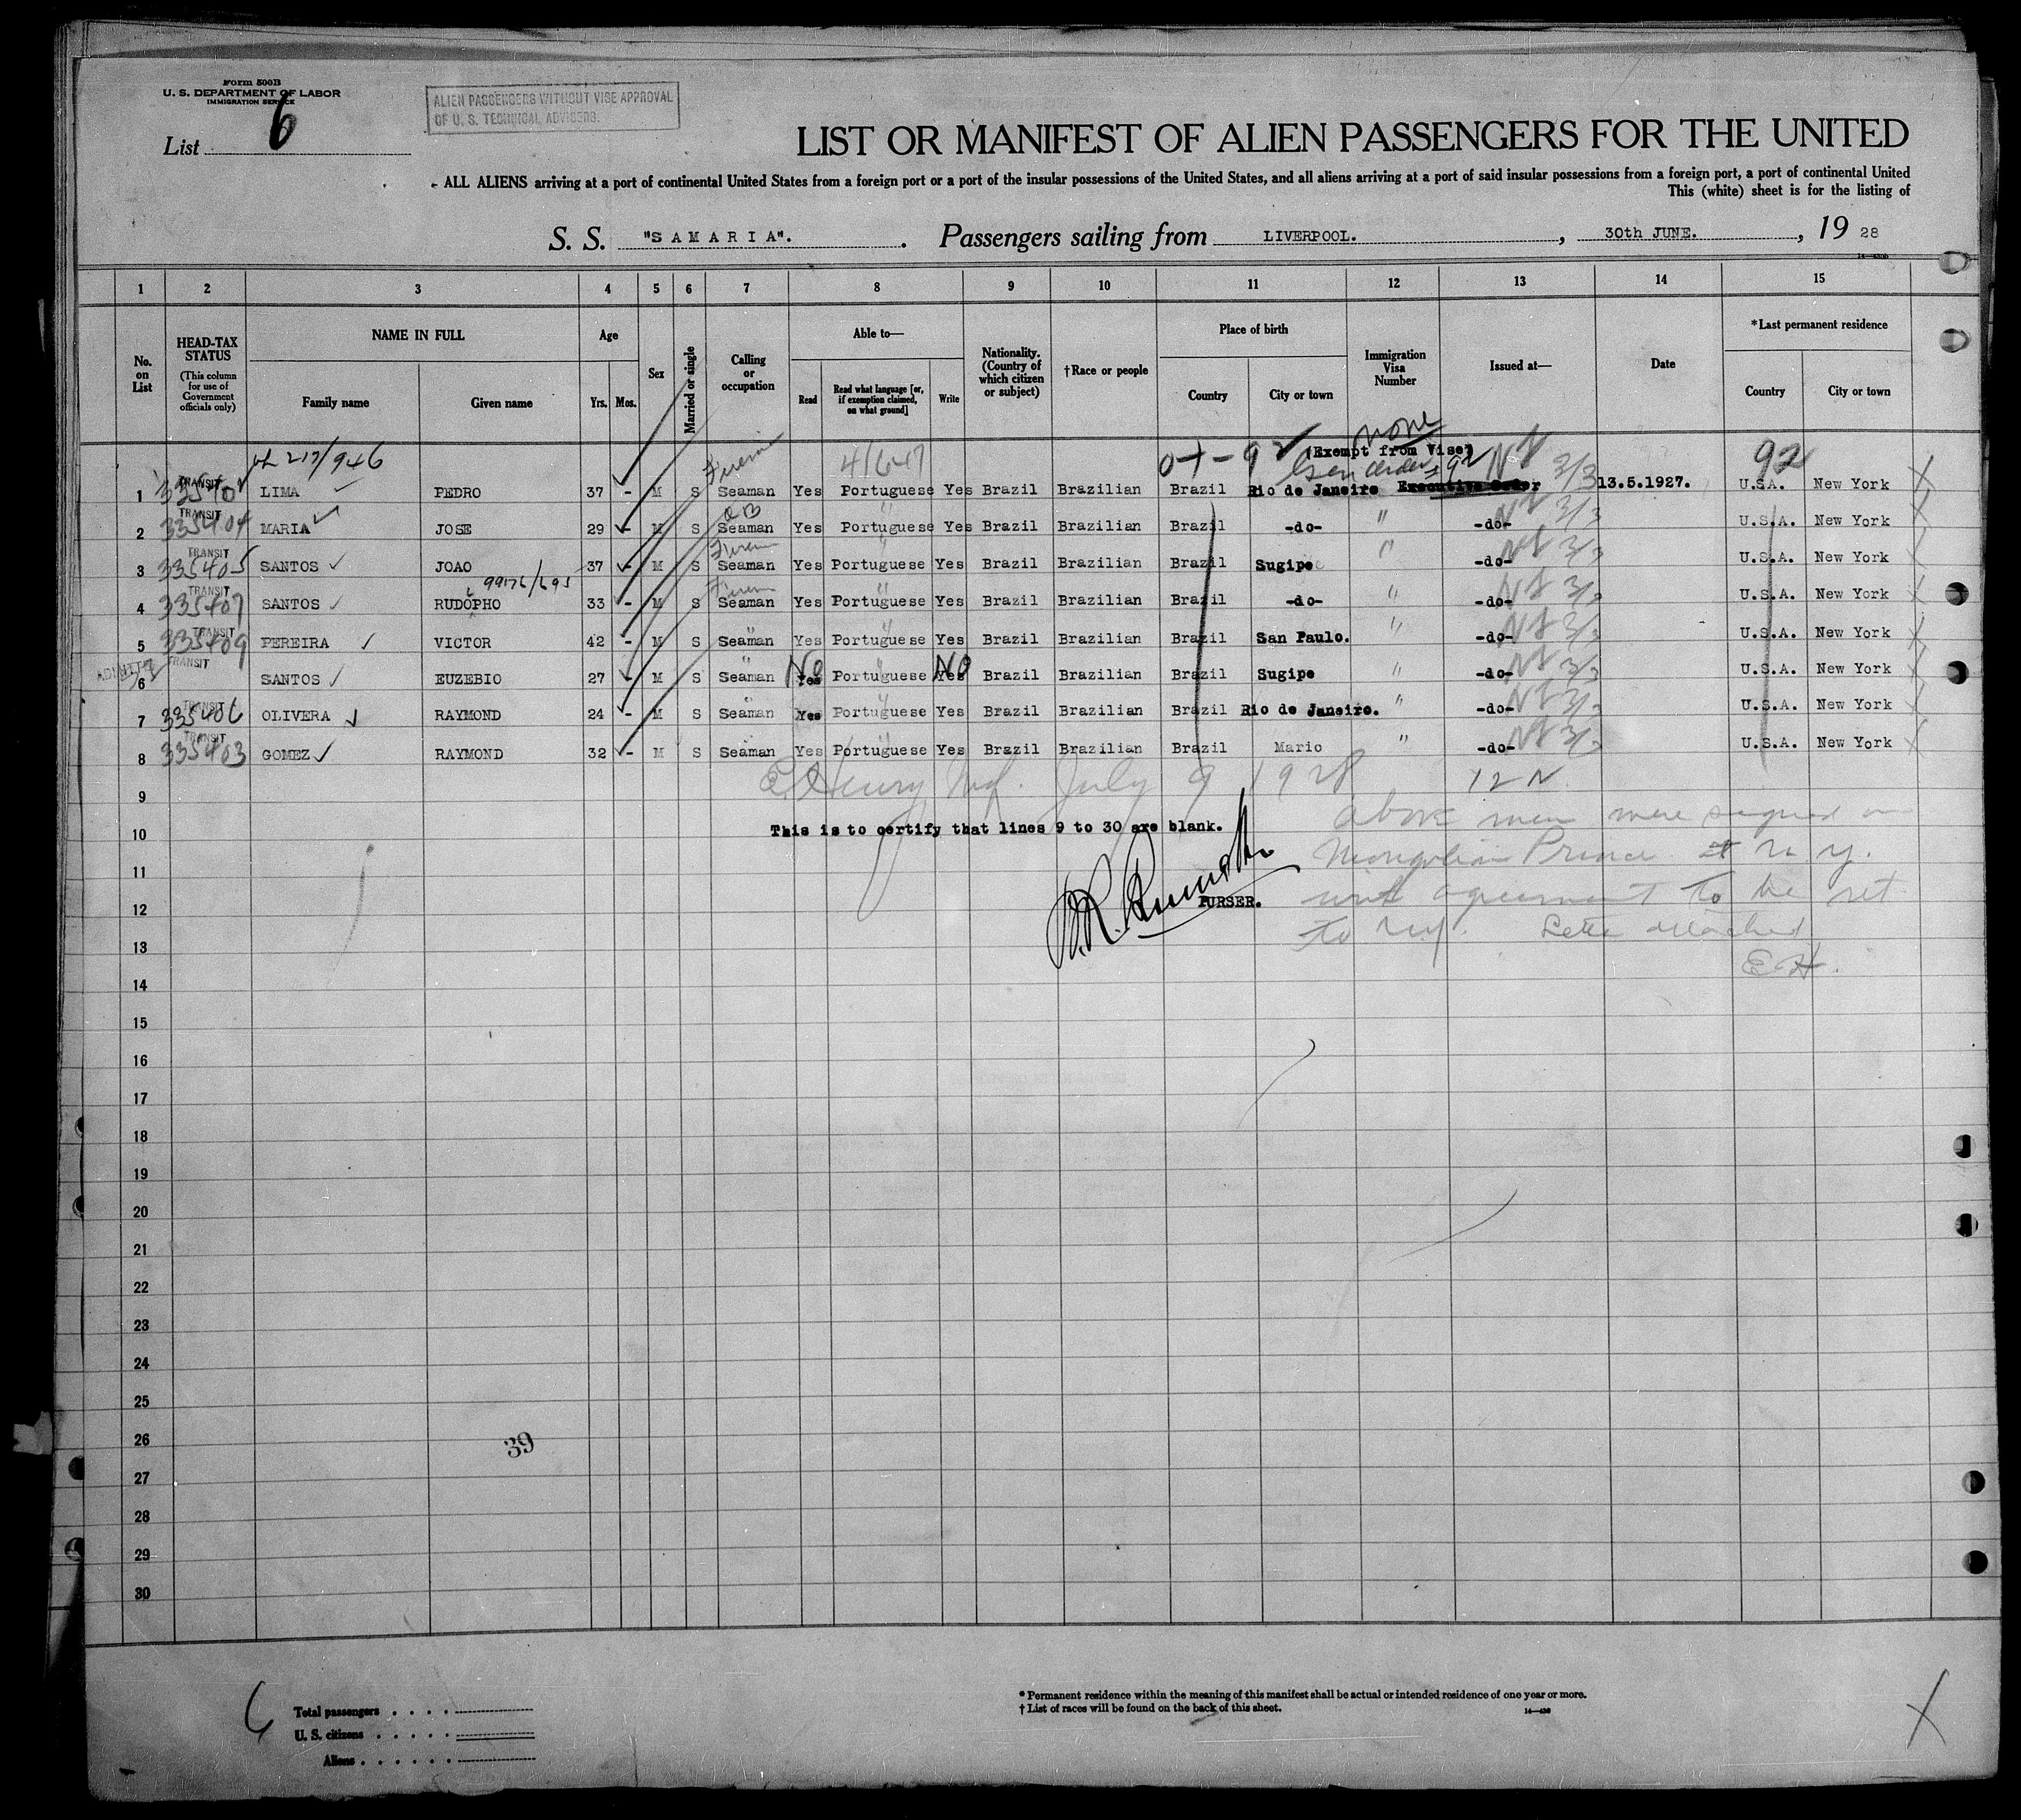 Form 500B
U. S. DEPARTMENT OF LABOR
IMMIGRATION SERVICE
List 6
ALIEN PASSENGERS WITHOUT VISE APPROVAL
OF U. S. TECHNICAL ADVISERS.
LIST OR MANIFEST OF ALIEN PASSENGERS FOR THE UNITED
ALL ALIENS arriving at a port of continental United States from a foreign port or a port of the insular possessions of the United States, and all aliens arriving at a port of said insular possessions from a foreign port, a port of continental United
This (white) sheet is for the listing of
S. S. "SAMARIA". Passengers sailing from LIVERPOOL. , 30th JUNE. , 19 28
1 2 3 4 5 6 7 8 9 10 11 12 13 14 15
No. on List
HEAD-TAX STATUS (This column for use of Government officials only)
NAME IN FULL
Family name Given name
Age
Yrs. Mos.
Sex
Married or single
Calling or occupation
Able to—
Read Read what language [or, if exemption claimed, on what ground] Write
Nationality. (Country of which citizen or subject)
†Race or people
Place of birth
Country City or town
Immigration Visa Number
Issued at—
Date
*Last permanent residence
Country City or town
none
(Exempt from Vise)
92
1 TRANSIT LIMA PEDRO 37 - M S Seaman Yes Portuguese Yes Brazil Brazilian Brazil Rio de Janeiro Executive Order 13.5.1927. U.S.A. New York
2 TRANSIT 335404 MARIA JOSE 29 - M S Seaman Yes Portuguese Yes Brazil Brazilian Brazil -do- " -do- U.S.A. New York
3 TRANSIT 335405 SANTOS JOAO 37 - M S Seaman Yes Portuguese Yes Brazil Brazilian Brazil Sugipe " -do- U.S.A. New York
4 TRANSIT 335407 SANTOS RUDOPHO 33 - M S Seaman Yes Portuguese Yes Brazil Brazilian Brazil -do- " -do- U.S.A. New York
5 TRANSIT 335409 PEREIRA VICTOR 42 - M S Seaman Yes Portuguese Yes Brazil Brazilian Brazil San Paulo. " -do- U.S.A. New York
6 TRANSIT SANTOS EUZEBIO 27 - M S Seaman No Yes Portuguese No Yes Brazil Brazilian Brazil Sugipe " -do- U.S.A. New York
7 TRANSIT 335406 OLIVERA RAYMOND 24 - M S Seaman Yes Portuguese Yes Brazil Brazilian Brazil Rio de Janeiro. " -do- U.S.A. New York
8 TRANSIT 335403 GOMEZ RAYMOND 32 - M S Seaman Yes Portuguese Yes Brazil Brazilian Brazil Mario " -do- U.S.A. New York
9
July 9 1928
10
This is to certify that lines 9 to 30 are blank.
above men were signed on
11
Mongolian Prince at N. Y.
12
PURSER.
with agreement to be ret
13
to N.Y. Letter attached
E H.
14
15
16
17
18
19
20
21
22
23
24
25
26
39
27
28
29
30
Total passengers
U. S. citizens
Aliens
* Permanent residence within the meaning of this manifest shall be actual or intended residence of one year or more.
† List of races will be found on the back of this sheet.